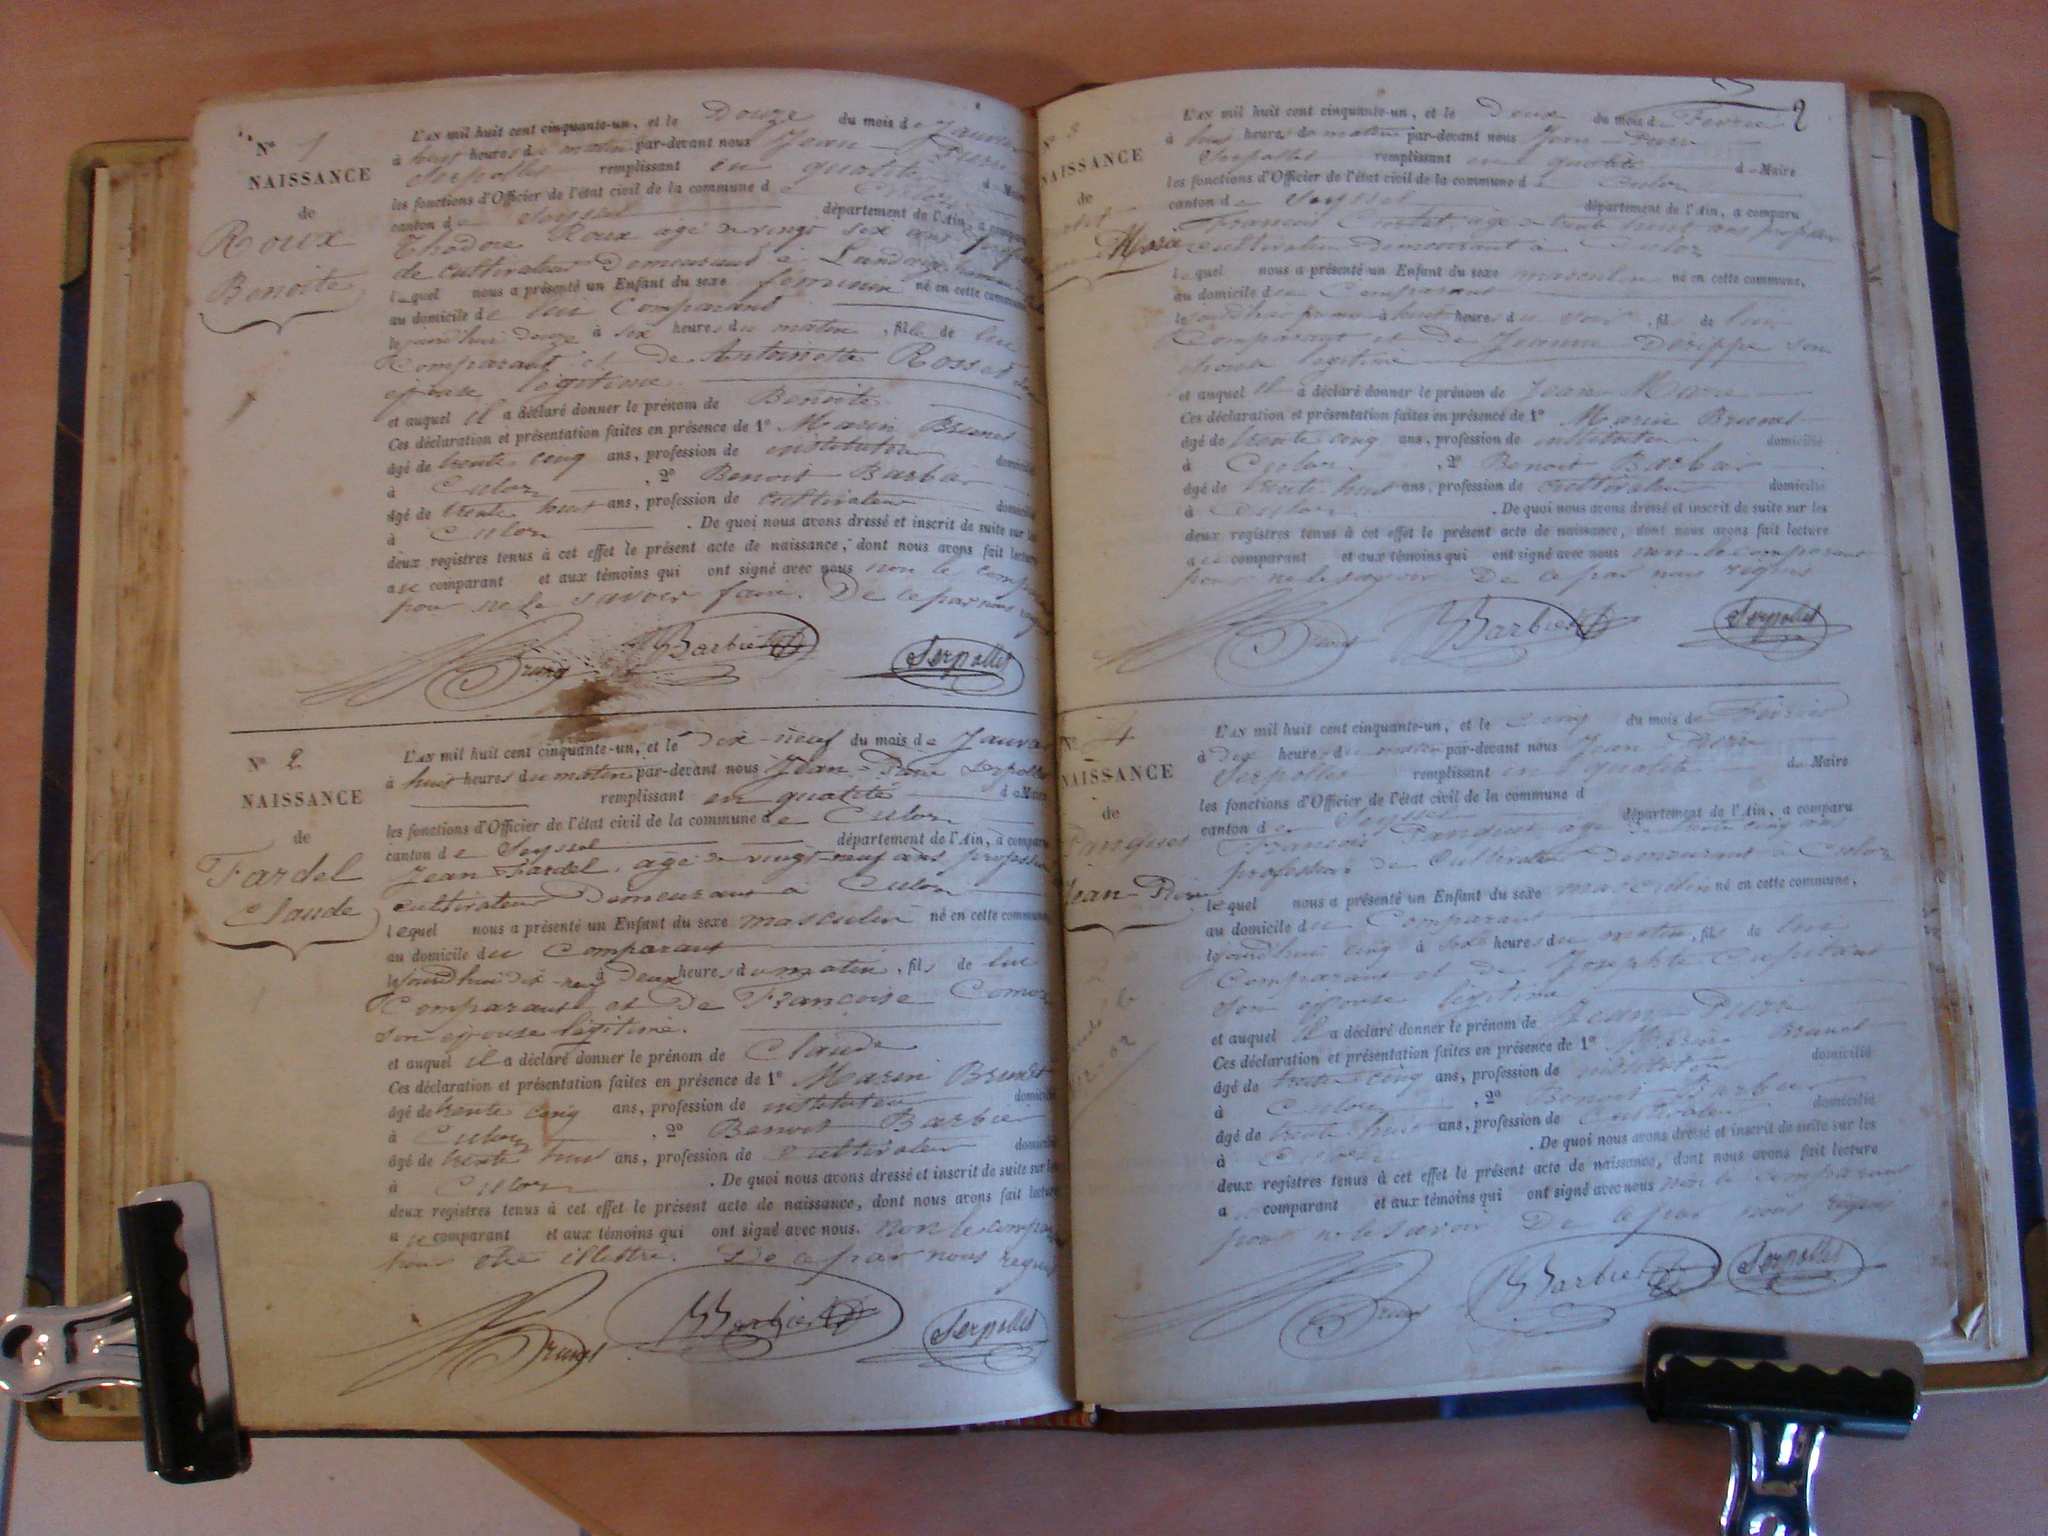 Nº 1
NAISSANCE
de
Roux
Benoite
L'AN mil huit cent cinquante-un, et le Douze du mois de Janvier
à huit heures du matin par-devant nous Jean Pierre
Serpollet remplissant en qualité de Maire
les fonctions d'Officier de l'état civil de la commune de Culoz
canton de Seyssel département de l'Ain, a comparu
Théodore Roux agé de vingt six ans
de cultivateur Demeurant à
lequel nous a présenté un Enfant du sexe féminin né en cette commune
au domicile de lui Comparant
lejourd'hui douze à six heures du matin, fille de lui
Comparant et de Antoinette Rosset
épouse légitime
et auquel il a déclaré donner le prénom de Benoite
Ces déclaration et présentation faites en présence de 1º Marin Brunet
âgé de trente cinq ans, profession de instituteur domicilié
à Culoz, 2º Benoit Barbier
âgé de trente huit ans, profession de cultivateur domicilié
à Culoz. De quoi nous avons dressé et inscrit de suite sur les
deux registres tenus à cet effet le présent acte de naissance, dont nous avons fait lecture
au comparant et aux témoins qui ont signé avec nous non le comparant
pour ne le savoir faire. De ce par nous requis
Brunet Barbier Serpollet
Nº 2
NAISSANCE
de
Fardel
Claude
L'AN mil huit cent cinquante-un, et le dix-neuf du mois de Janvier
à huit heures du matin par-devant nous Jean-Pierre Serpollet
remplissant en qualité de Maire
les fonctions d'Officier de l'état civil de la commune de Culoz
canton de Seyssel département de l'Ain, a comparu
Jean Fardel, agé de vingt-neuf ans profession
cultivateur Demeurant à Culoz
lequel nous a présenté un Enfant du sexe masculin né en cette commune
au domicile du comparant
lejourd'hui dix-neuf à deux heures du matin, fils de lui
Comparant et de Françoise
son epouse légitime.
et auquel il a déclaré donner le prénom de Claude
Ces déclaration et présentation faites en présence de 1º Marin Brunet
âgé de trente cinq ans, profession de instituteur domicilié
à Culoz, 2º Benoit Barbier
âgé de trente huit ans, profession de cultivateur domicilié
à Culoz. De quoi nous avons dressé et inscrit de suite sur les
deux registres tenus à cet effet le présent acte de naissance, dont nous avons fait lecture
au comparant et aux témoins qui ont signé avec nous. non le comparant
pour être illettré. De ce par nous requis
Brunet Barbier Serpollet
2
Nº 3
NAISSANCE
de
Marie
L'AN mil huit cent cinquante-un, et le Deux du mois de Fevrier
à huit heures du matin par-devant nous Jean-Pierre
Serpollet remplissant en qualité de Maire
les fonctions d'Officier de l'état civil de la commune de Culoz
canton de Seyssel département de l'Ain, a comparu
François agé de trente huit ans profession
cultivateur Demeurant à Culoz
lequel nous a présenté un Enfant du sexe masculin né en cette commune,
au domicile du Comparant
le à huit heures du soir, fils de lui
Comparant et de Jeanne Derippe son
épouse légitime
et auquel il a déclaré donner le prénom de Jean Marie
Ces déclaration et présentation faites en présence de 1º Marin Brunet
âgé de trente cinq ans, profession de instituteur domicilié
à Culoz, 2º Benoit Barbier
âgé de trente huit ans, profession de cultivateur domicilié
à Culoz. De quoi nous avons dressé et inscrit de suite sur les
deux registres tenus à cet effet le présent acte de naissance, dont nous avons fait lecture
au comparant et aux témoins qui ont signé avec nous non le comparant
pour ne le savoir De ce par nous requis
Brunet Barbier Serpollet
Nº 4
NAISSANCE
de
Jean-Pierre
L'AN mil huit cent cinquante-un, et le cinq du mois de Fevrier
à dix heures du matin par-devant nous Jean-Pierre
Serpollet remplissant en qualité de Maire
les fonctions d'Officier de l'état civil de la commune d
canton de Seyssel département de l'Ain, a comparu
François agé de trente cinq ans
profession de Cultivateur demeurant à Culoz
lequel nous a présenté un Enfant du sexe masculin né en cette commune,
au domicile du Comparant
lejourd'hui cinq à six heures du matin, fils de lui
Comparant et de Josephte
son épouse légitime
et auquel il a déclaré donner le prénom de Jean-Pierre
Ces déclaration et présentation faites en présence de 1º Marin Brunet
âgé de trente cinq ans, profession de instituteur domicilié
à Culoz, 2º Benoit Barbier
âgé de trente huit ans, profession de Cultivateur domicilié
à Culoz. De quoi nous avons dressé et inscrit de suite sur les
deux registres tenus à cet effet le présent acte de naissance, dont nous avons fait lecture
a comparant et aux témoins qui ont signé avec nous non le comparant
pour ne le savoir De ce par nous requis
Brunet Barbier Serpollet